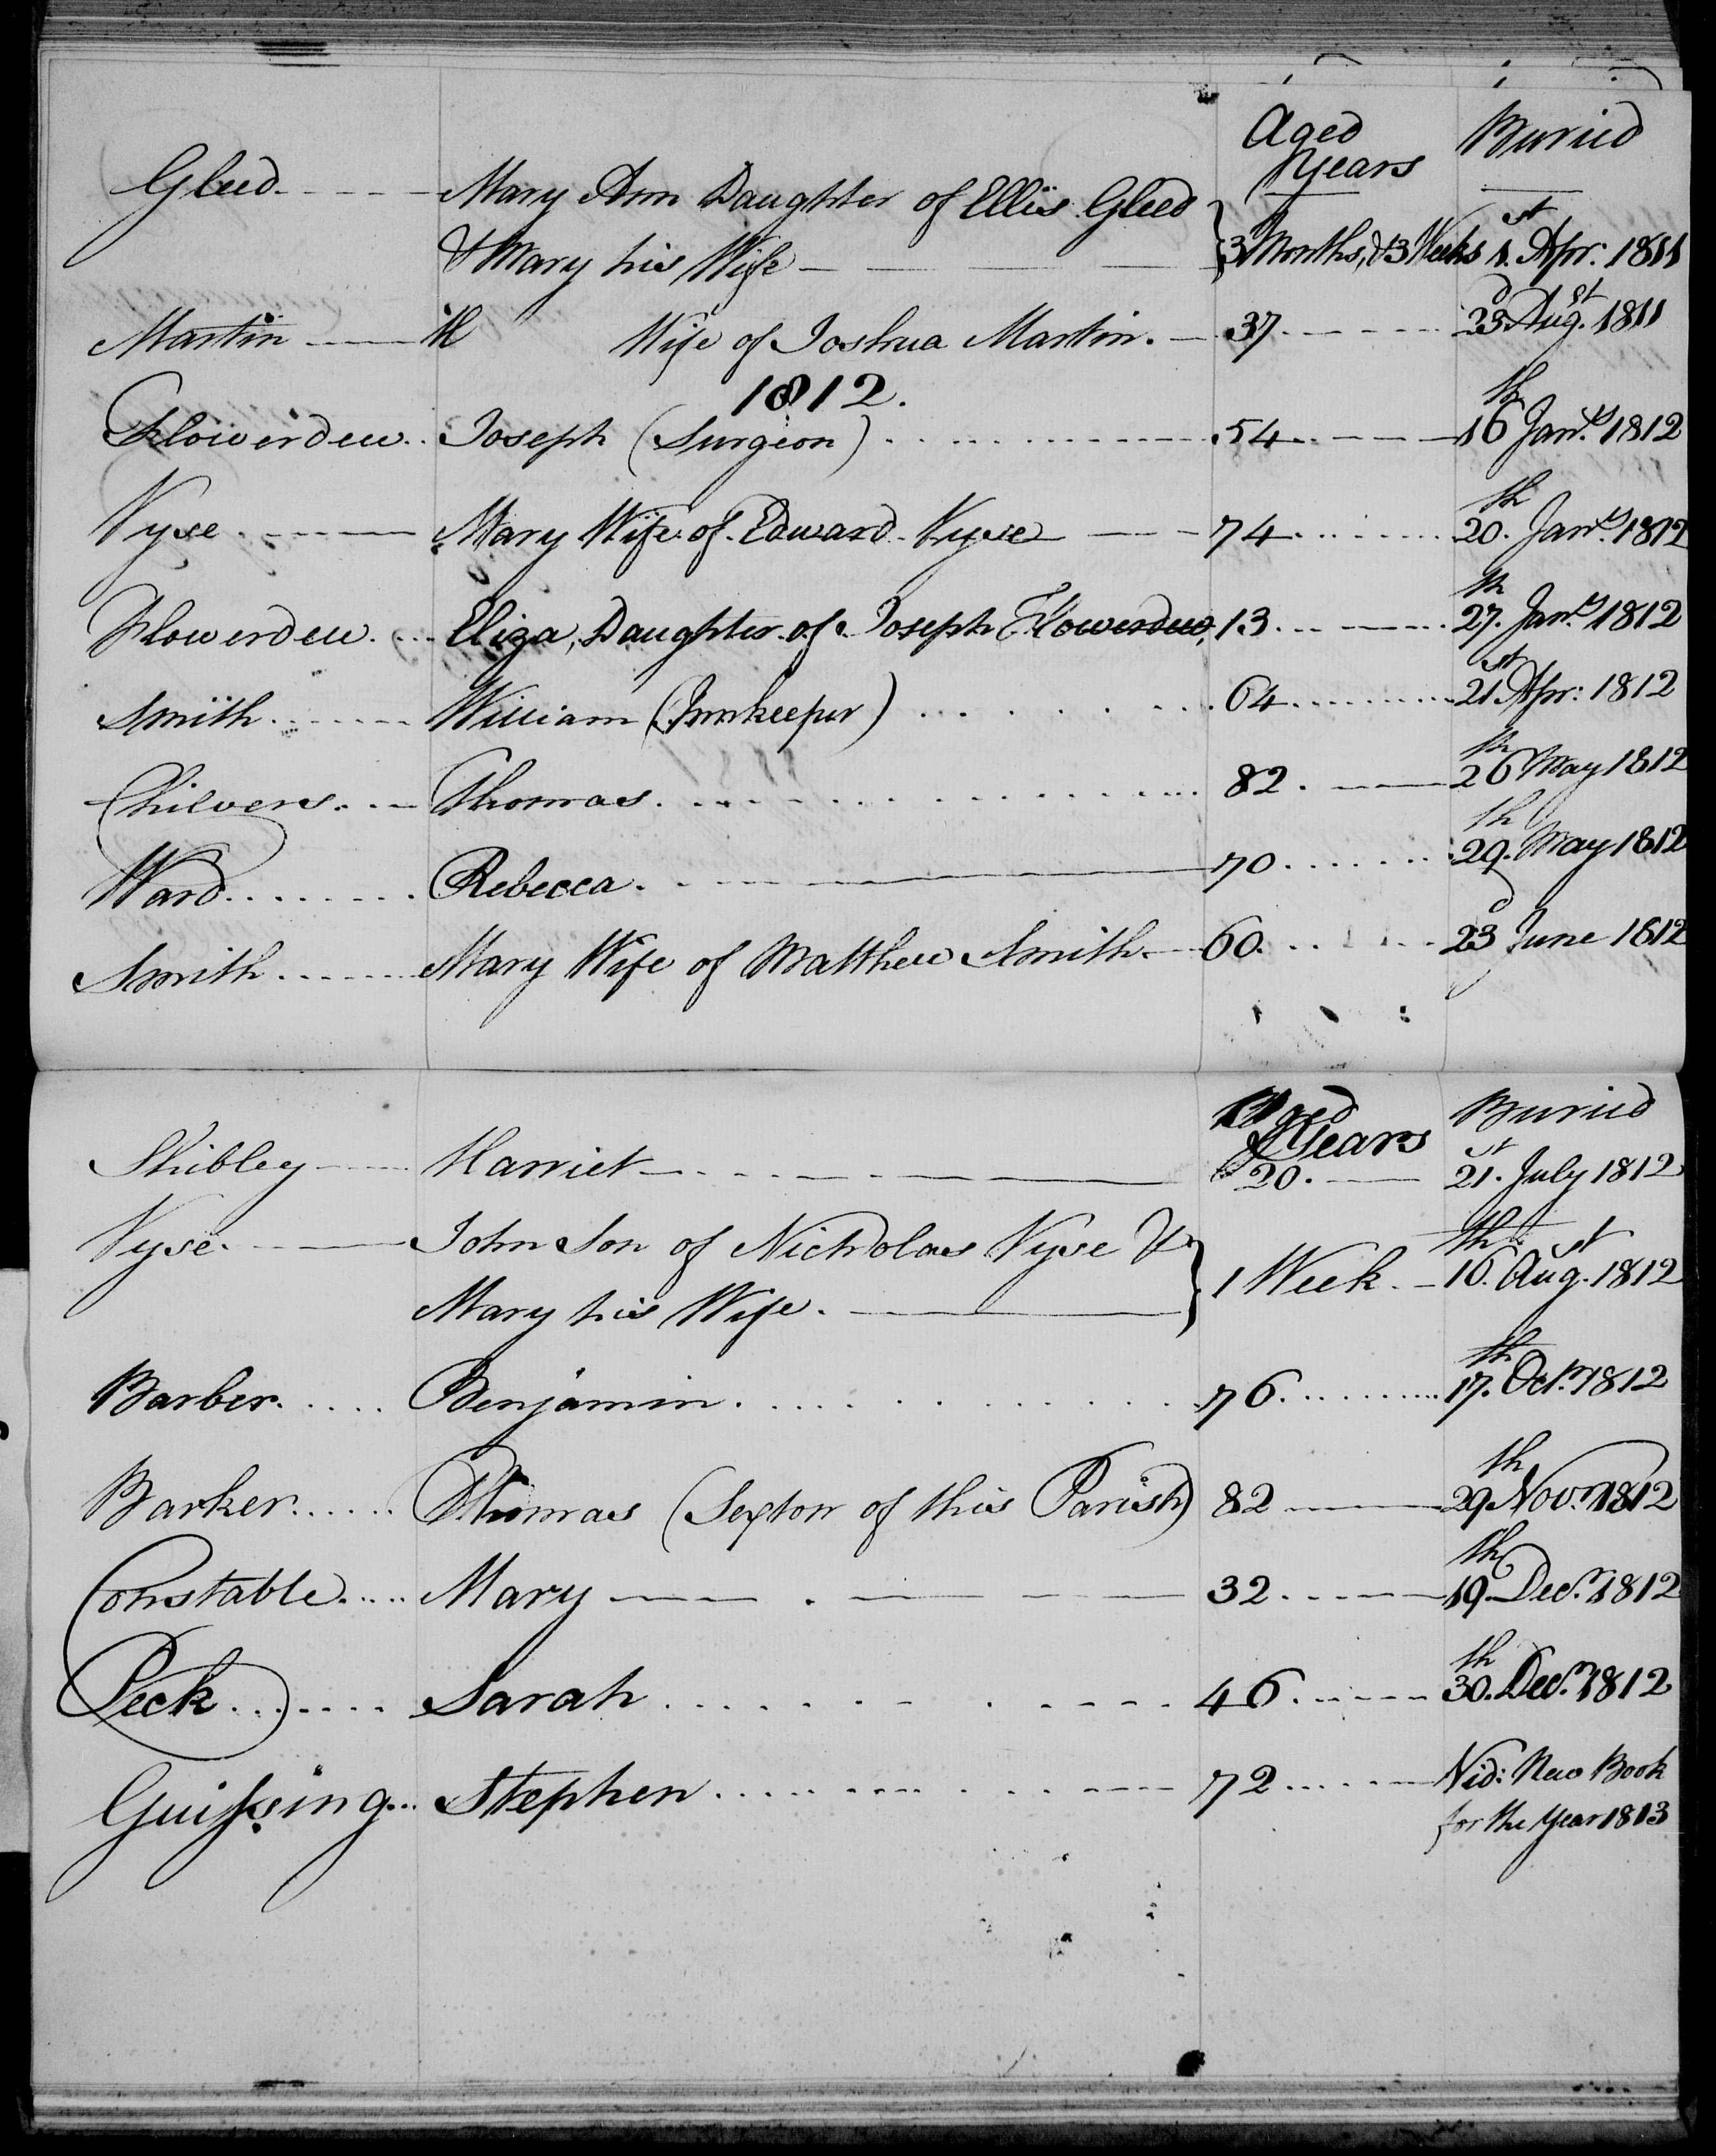 Aged Years Buried
Gleed Mary Ann Daughter of Ellis Gleed
& Mary his Wife 3 Months, & 3 Weeks 1st Apr: 1811
Martin Wife of Joshua Martin. 37 23d Augst 1811
1812.
Flowerdew Joseph (Surgeon) 54 16th Jany 1812
Vyse Mary Wife of Edward Vyse 74 20th Jany 1812
Flowerdew Eliza, Daughter of Joseph Flowerdew, 13 27th Jany 1812
Smith William (Innkeeper) 64 21st Apr: 1812
Chilvers Thomas 82 26th May 1812
Ward Rebecca 70 29th May 1812
Smith Mary Wife of Matthew Smith 60 23d June 1812
Aged Years Buried
Shibley Harriet 20 21st July 1812
Vyse John Son of Nicholas Vyse &
Mary his Wife. 1 Week 16th Augst 1812
Barber Benjamin 76 17th Octr 1812
Barker Thomas (Sexton of this Parish) 82 29th Novr 1812
Constable Mary 32 19th Decr 1812
Peck Sarah 46 30th Decr 1812
Guissing Stephen 72 Vid: New Book
for the Year 1813